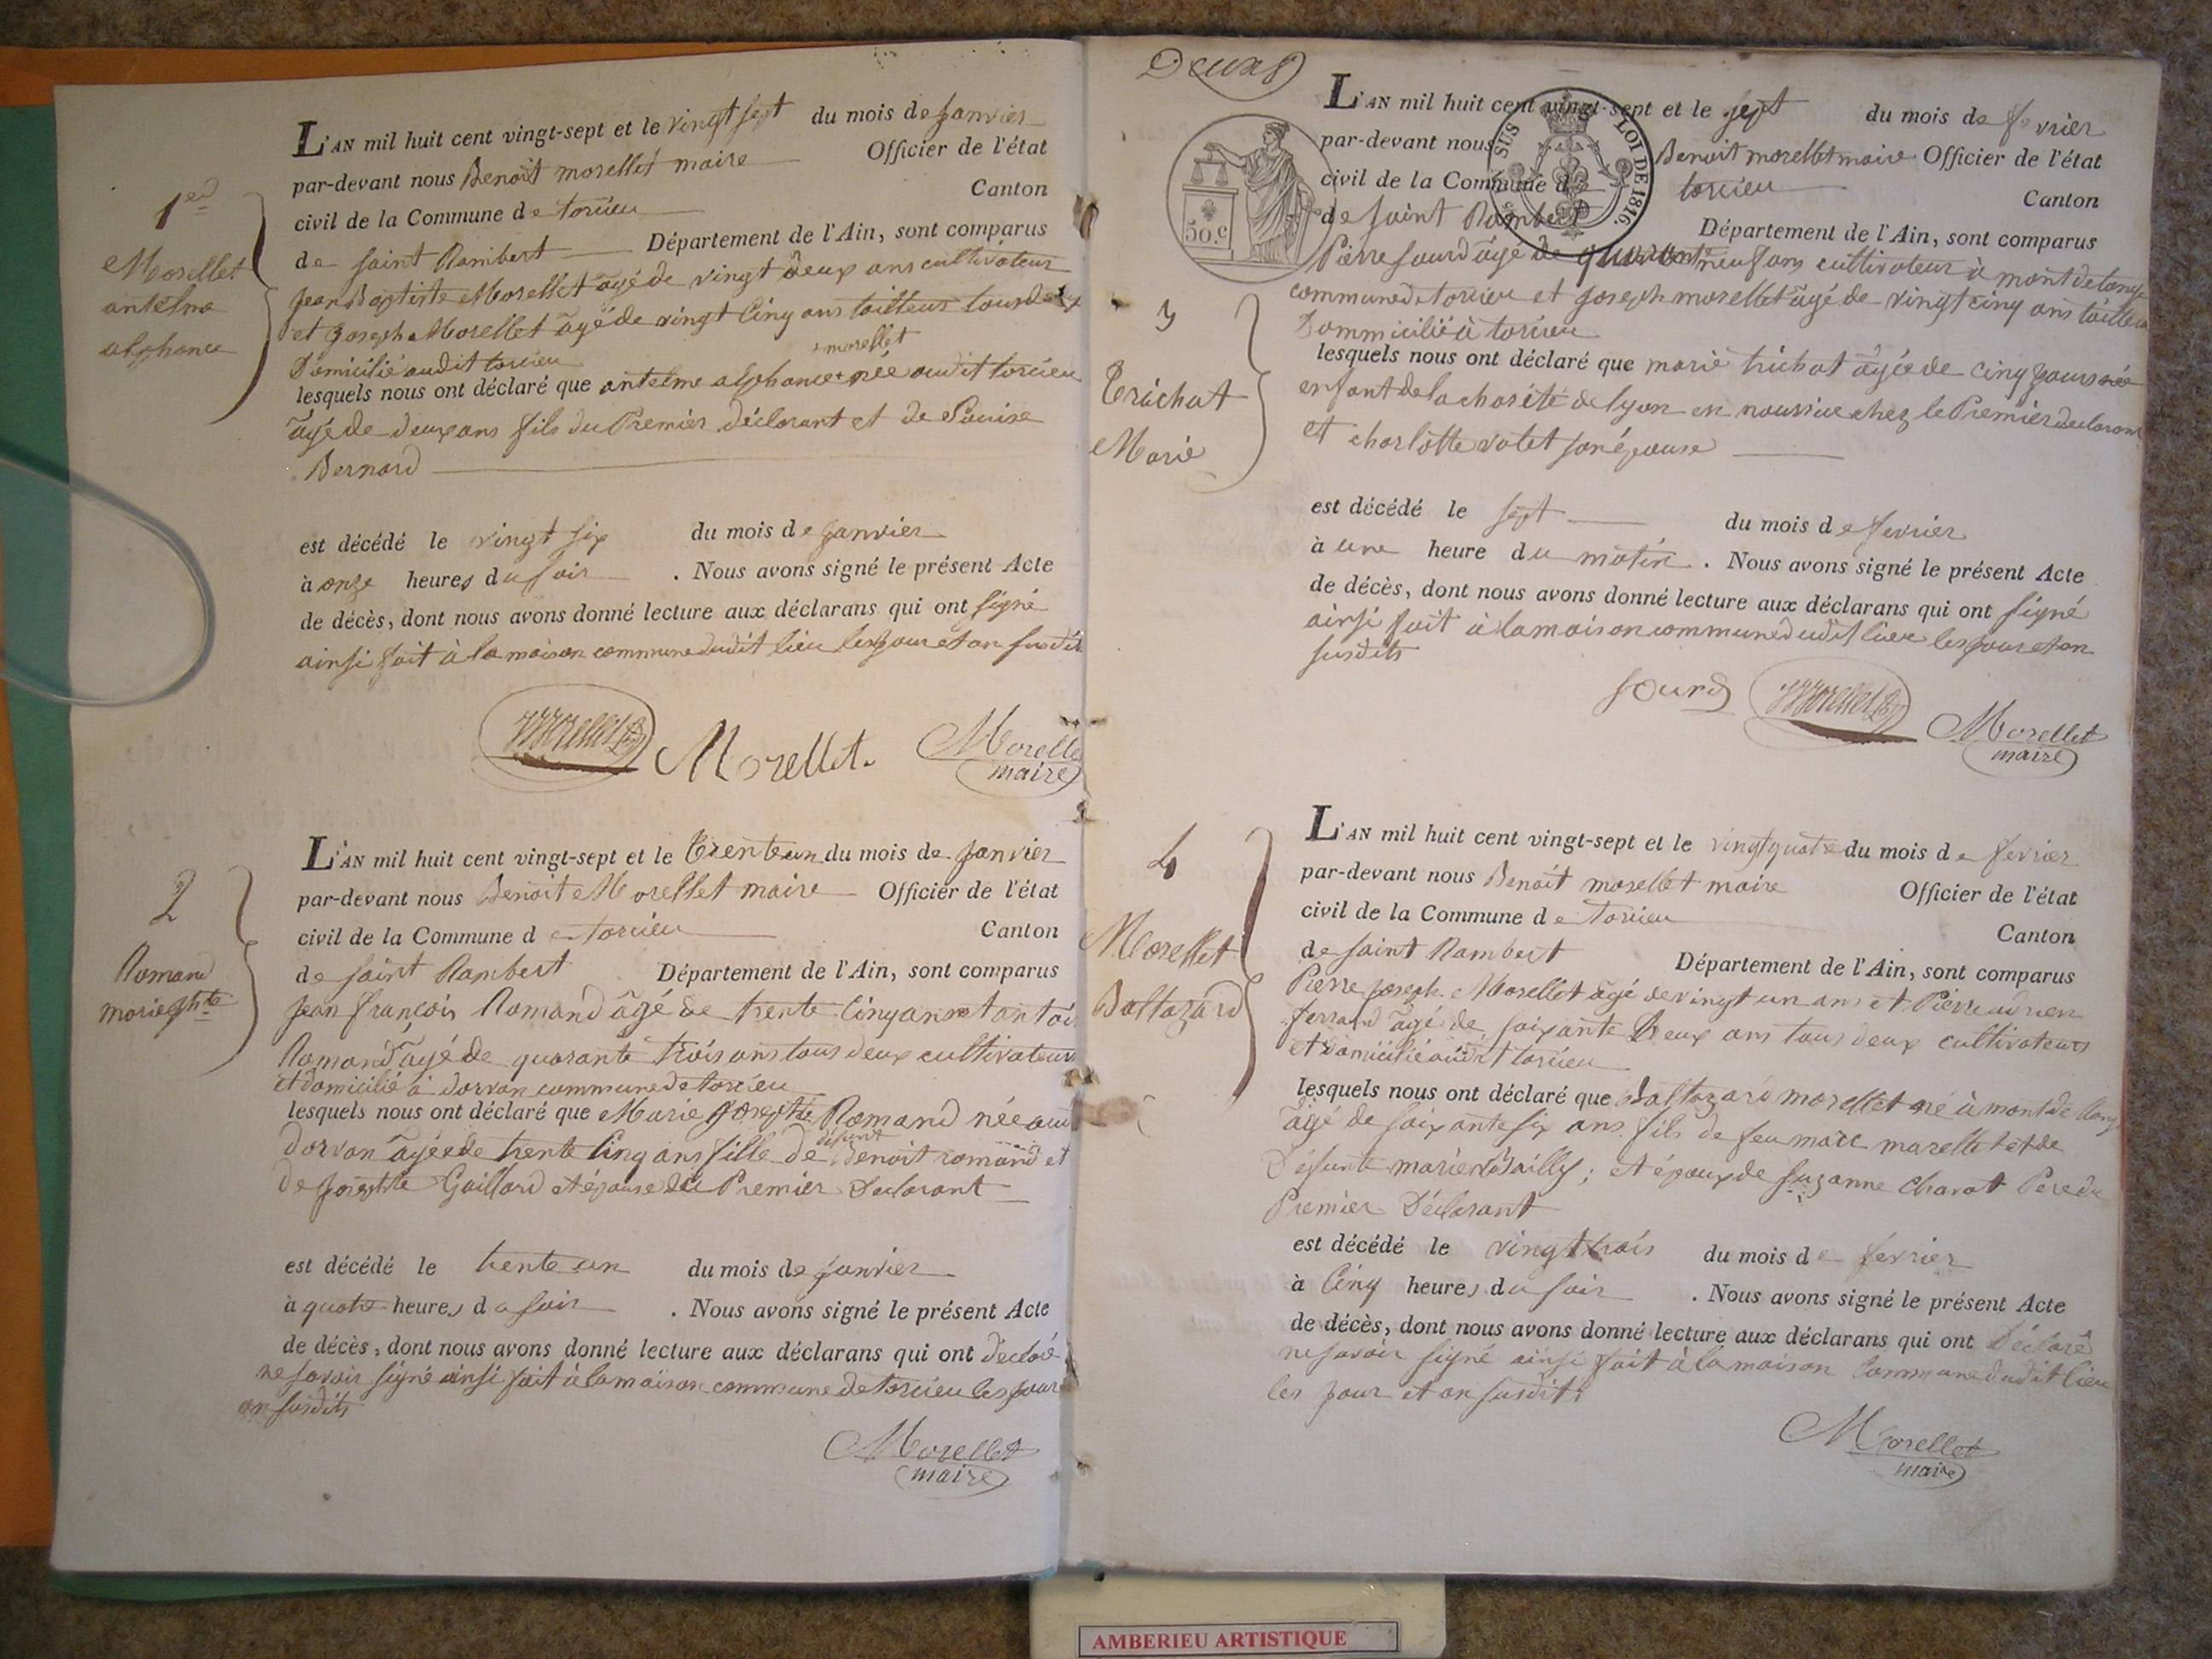 1er
Morellet
antelme
alphonce
L'AN mil huit cent vingt-sept et le vingt sept du mois de janvier
par-devant nous Benoit morellet maire Officier de l'état
civil de la Commune de torcieu Canton
de saint Rambert Département de l'Ain, sont comparus
Jean Baptiste Morellet agé de vingt deux ans cultivateur
et joseph Morellet agé de vingt cinq ans tailleur tous deux
Domicilié audit torcieu
+ morellet
lesquels nous ont déclaré que antelme alphonce + née audit torcieu
agé de deux ans fils du Premier déclarant et de Louise
Bernard
est décédé le vingt six du mois de janvier
à onze heures du soir . Nous avons signé le présent Acte
de décès, dont nous avons donné lecture aux déclarans qui ont signé
ainsi fait à la maison commune dudit lieu les jour et an susdit
Morellet Morellet. Morelle
maire
2
Romand
marie jhte
L'AN mil huit cent vingt-sept et le trente un du mois de janvier
par-devant nous Benoit Morellet maire Officier de l'état
civil de la Commune de torcieu Canton
de saint Rambert Département de l'Ain, sont comparus
jean françois Romand âgé de trente cinq ans et antoi
Romand agé de quarante trois ans tous deux cultivateurs
et domicilié à dorvan commune de torcieu
lesquels nous ont déclaré que Marie josephte Romand née au
défunt
dorvan agée de trente cinq ans fille de Benoit romand et
de josephte Gaillard et épouse du Premier Declarant
est décédé le trente un du mois de janvier
à quatre heures du soir . Nous avons signé le présent Acte
de décès, dont nous avons donné lecture aux déclarans qui ont déclaré
ne savoir signé ainsi fait à la maison commune de torcieu les jour
an susdits
Morellet
maire
Deux
50.c
SUS LOI DE 1816.
L'AN mil huit cent vingt-sept et le sept du mois de fevrier
par-devant nous Benoit morellet maire Officier de l'état
civil de la Commune de torcieu Canton
de saint Rambert Département de l'Ain, sont comparus
Pierre sourd agé de quarante neuf ans cultivateur à mont de lange
commune de torcieu et joseph morellet agé de vingt cinq ans tailleur
Dommicilié à torcieu
3
Trichat
Marie
lesquels nous ont déclaré que marie trichat agée de cinq jours née
enfant de la charité de lyon en nourrice chez le Premier declarant
et charlotte votet son épouse
est décédé le sept du mois de fevrier
à une heure du matin . Nous avons signé le présent Acte
de décès, dont nous avons donné lecture aux déclarans qui ont signé
ainsi fait à la maison commune dudit lieu les jour et an
susdits
sourd Morellet Morellet
maire
4
Morellet
Baltazard
L'AN mil huit cent vingt-sept et le vingt quatre du mois de fevrier
par-devant nous Benoit morellet maire Officier de l'état
civil de la Commune de torcieu Canton
de saint Rambert Département de l'Ain, sont comparus
Pierre joseph Morellet agé de vingt un ans et Pierre
ferrand agé de soixante Deux ans tous deux cultivateurs
et domicilié audit torcieu
lesquels nous ont déclaré que Baltazard morellet né à mont de lang
âgé de soixante six ans fils de feu marc morellet et de
Défunte marie Bailly ; et époux de suzanne Charot Pere du
Premier Déclarant
est décédé le vingt trois du mois de fevrier
à Cinq heures du soir . Nous avons signé le présent Acte
de décès, dont nous avons donné lecture aux déclarans qui ont Déclaré
ne savoir signé ainsi fait à la maison Commune dudit lieu
les jour et an susdits
Morellet
maire
AMBERIEU ARTISTIQUE